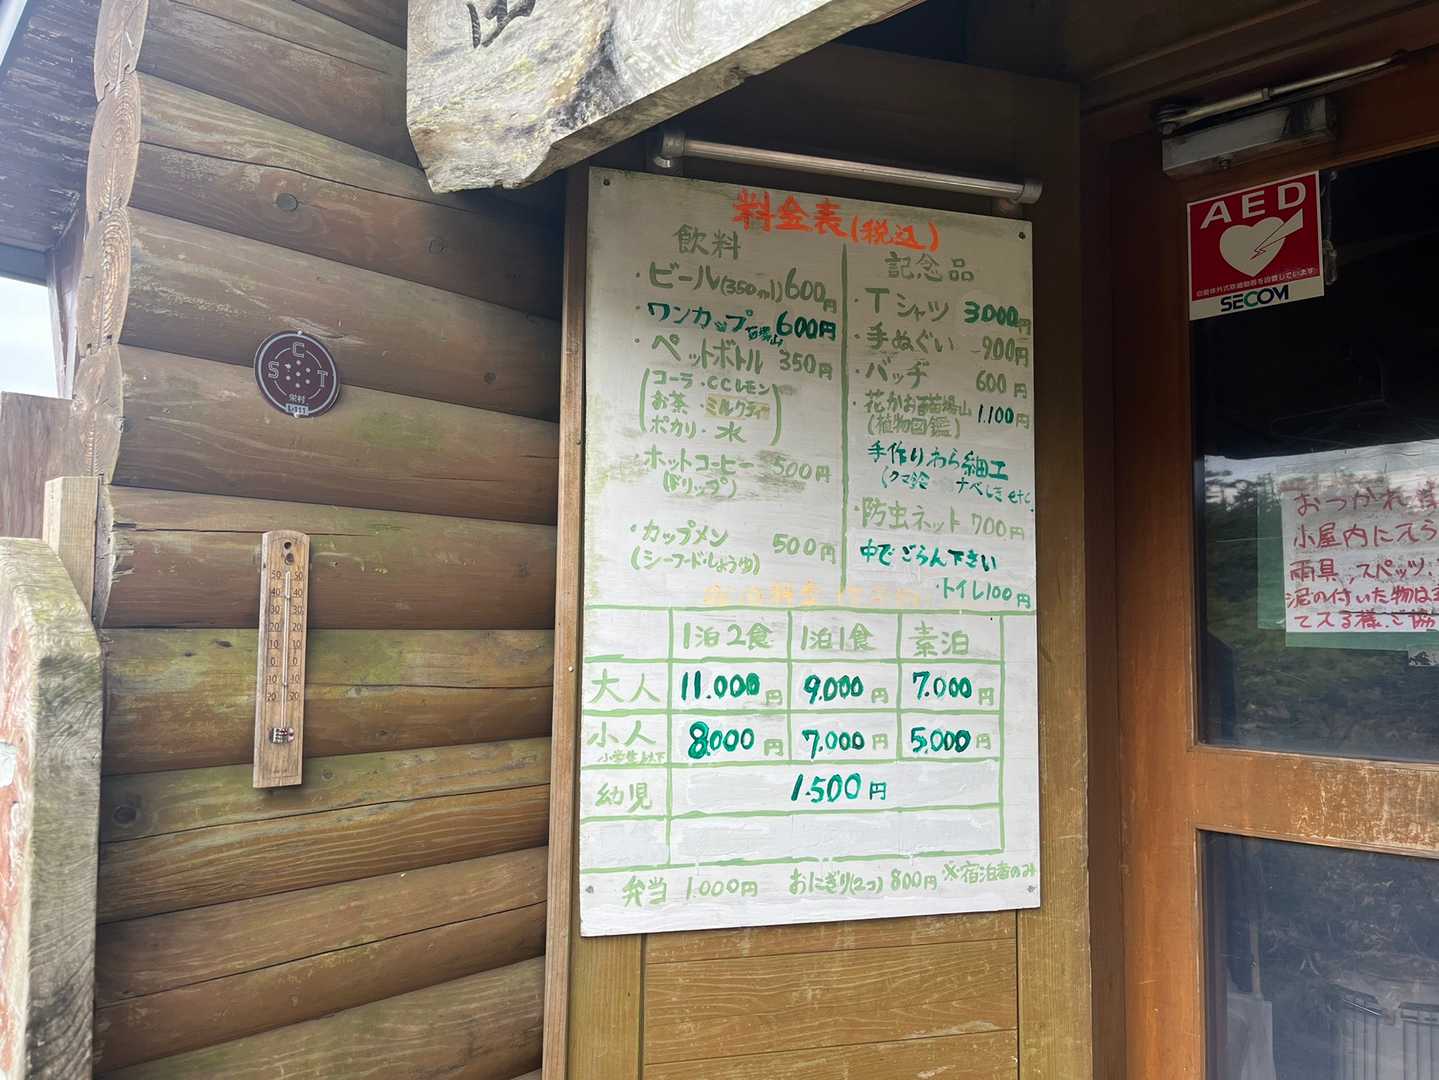 山
料金表(税込)
飲料
・ビール(350ml)600円
・ワンカップ苗場山600円
・ペットボトル 350円
コーラ・CCレモン
お茶・ミルクティー
ポカリ・水
・ホットコーヒー 500円
(ドリップ)
・カップメン 500円
(シーフード・しょうゆ)
記念品
・Tシャツ 3,000円
・手ぬぐい 900円
・バッヂ 600円
・花かお苗場山 1,100円
(植物図鑑)
手作りわら細工
(クマ鈴 ナベしき etc.
・防虫ネット 700円
中でごらん下さい
・トイレ100円
1泊2食 1泊1食 素泊
大人 11.000円 9.000円 7.000円
小人 8.000円 7.000円 5.000円
小学生以下
幼児 1.500円
弁当 1.000円 おにぎり(2コ) 800円 ※宿泊者のみ
C
S T
栄村
AED
SECOM
50 50
40 40
30 30
20 20
10 10
0 0
10 10
20 20
おつかれ
小屋内に入る
雨具、スペッツ、
泥の付いた物は
て入る様、ご協